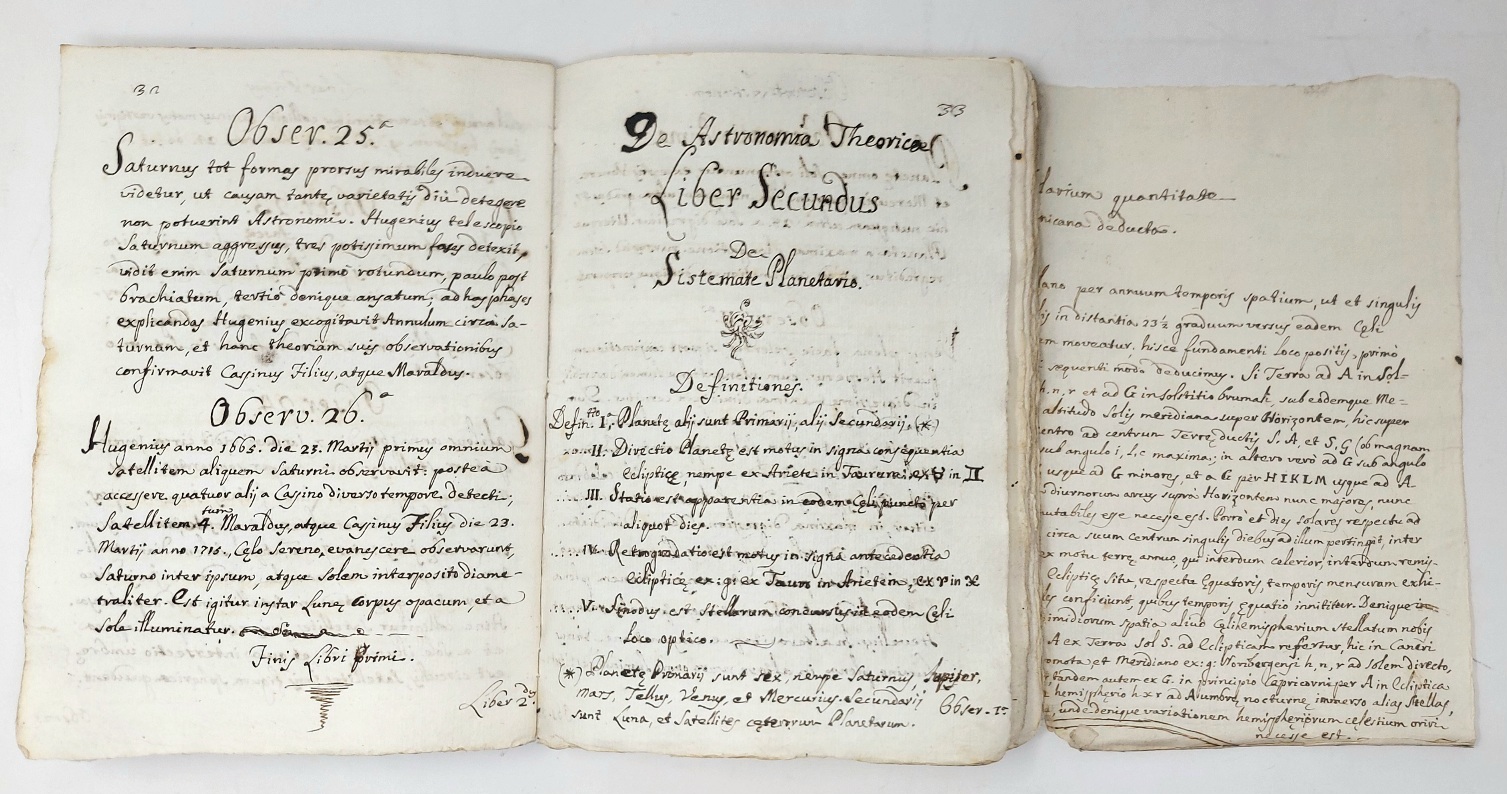 32
Obser. 25.ª
Saturnus tot formas prorsus mirabiles induere
videtur, ut causam tantę varietatis diù detegere
non potuerint Astronomi. Hugenius telescopio
Saturnum aggressus, tres potissimum fases detexit,
vidit enim Saturnum primò rotundum, paulo post
brachiatum, tertiò denique ansatum; ad has phases
explicandas Hugenius excogitavit Annulum circa Sa-
turnum, et hanc theoriam suis observationibus
confirmavit Cassinus Filius, atque Maraldus.
Observ. 26.ª
Hugenius anno 1665. die 25. Martij primus omnium
Satellitem aliquem Saturni observavit: postea
accessere quatuor alij a Cassino diverso tempore detecti;
Satellitem 4.tum Maraldus, atque Cassinus Filius die 23.
Martij anno 1715., Cęlo Sereno, evanescere observarunt,
Saturno inter ipsum, atque Solem interposito diame-
traliter. Est igitur instar Lunę Corpus opacum, et a
Sole illuminatur.
Finis Libri primi.
Liber 2.dus
33
De Astronomia Theorica
Liber Secundus
De
Sistemate Planetario.
Definitiones.
Defin.tio I.ª Planetę alij sunt Primarij, alij Secundarij. (*)
II. Directio Planetę est motus in signa consequentia
Eclipticę, nempe ex Ariete in Taurum, ex ♉ in ♊
III. Statio est apparentia in eodem Cęli puncto per
aliquot dies.
IV. Retrogradatio est motus in signa antecedentia
Eclipticę ex: gr: ex Tauro in Arietem, ex ♈ in ♓
V. Sinodus est Stellarum concursus in eodem Cęli
Loco optico.
(*) Planetę Primarij sunt sex, nempe Saturnus Jupiter,
Mars, Tellus, Venus, et Mercurius. Secundarij
sunt Luna, et Satellites cęterorum Planetarum.
Obser. 1.ª
quantitate
deducta.
per annuum temporis spatium, ut et singulis
in distantia 23½ graduum versus eadem Cęli
moveatur, hisce fundamenti loco positis, primò
sequenti modo deducimus. Si Terra ad A in Sol-
h, n, r et ad G in Solstitio brumali, sub eodemque Me-
altitudo Solis meridiana super Horizontem, hic super
ad centrum Terrę ductis S. A, et S, G (ob magnam
sub angulo i, L, c maxima; in altero verò ad G sub angulo
usque ad G minores, et a G per HIKLM usque ad A
diurnorum arcus supra Horizontem nunc majores, nunc
esse necesse est. Porrò et dies solares respectu ad
circa suum centrum singulis diebus ad illum pertingit, inter
ex motu terrę annuo, qui interdum celerior, interdum remis-
Eclipticę situ, respectu Equatoris, temporis mensuram exhi-
conficiunt, quibus temporis ęquatio innititur. Denique
spatia aliud Cęli hemispherium stellatum nobis
A ex Terra Sol S. ad Eclipticam refertur, hic in Cancri
et Meridiano ex: g: Noribergensi h, n, r ad Solem directo,
tandem autem ex G. in principio Capricorni per A in Ecliptica
hemisphęrio h x r ad A umbrę nocturnę immerso alias Stellas,
unde denique variationem hemisphęriorum cęlestium oriri
necesse est.